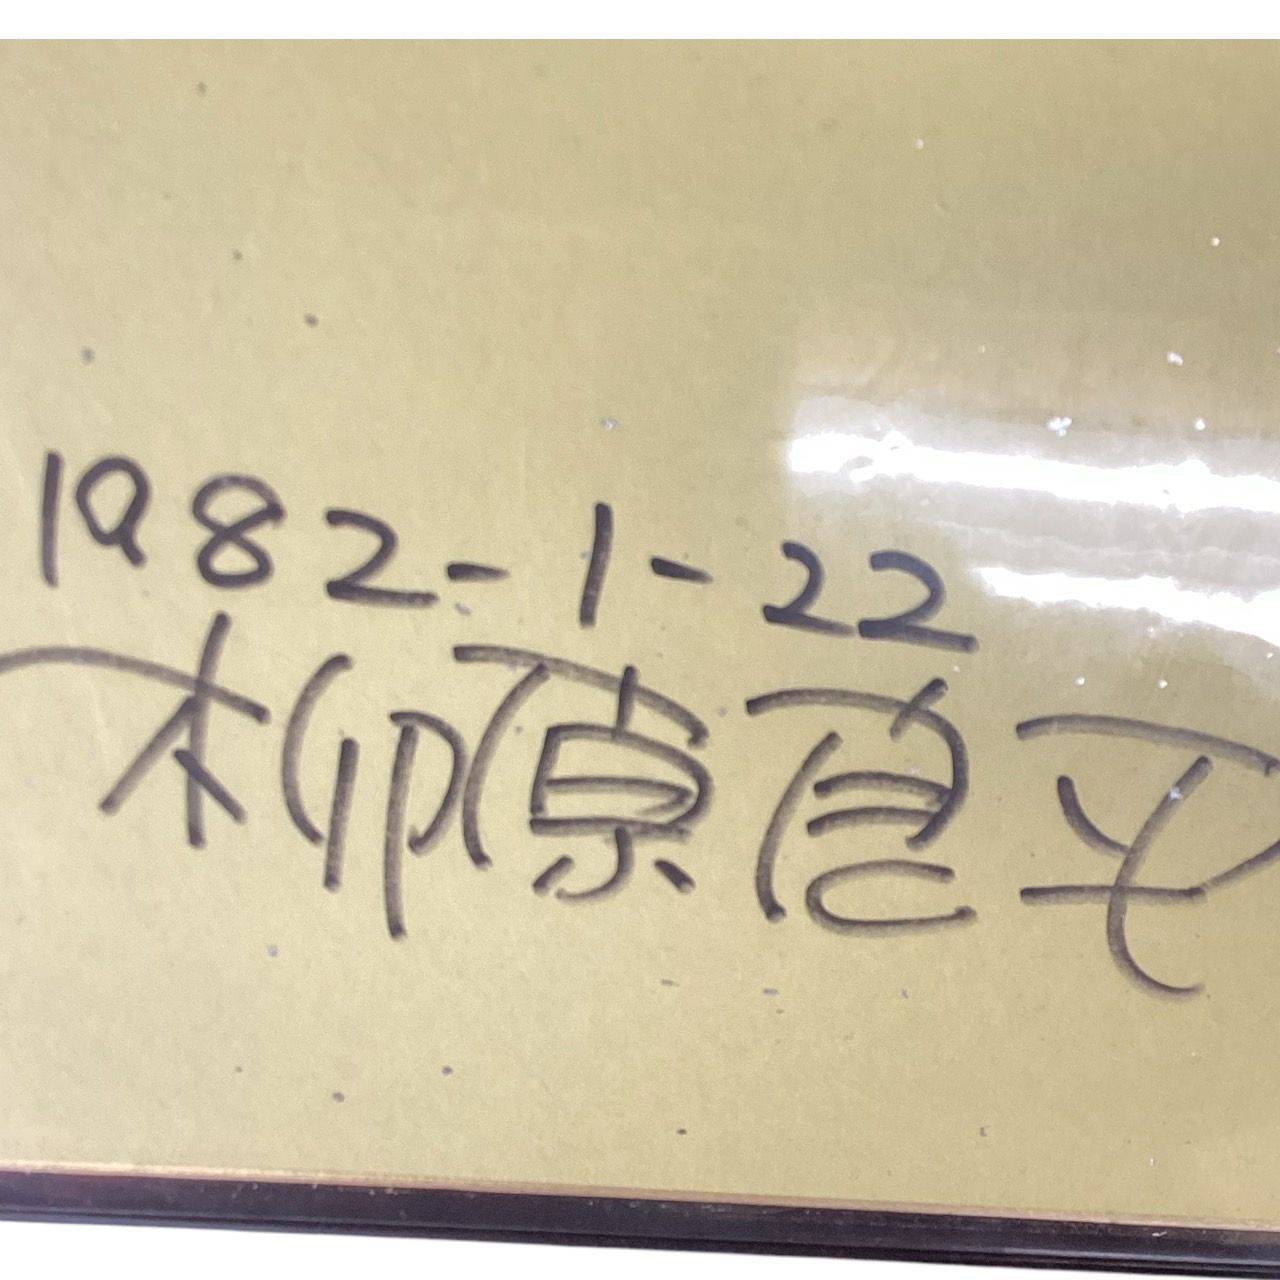 1982-1-22
柳原良平